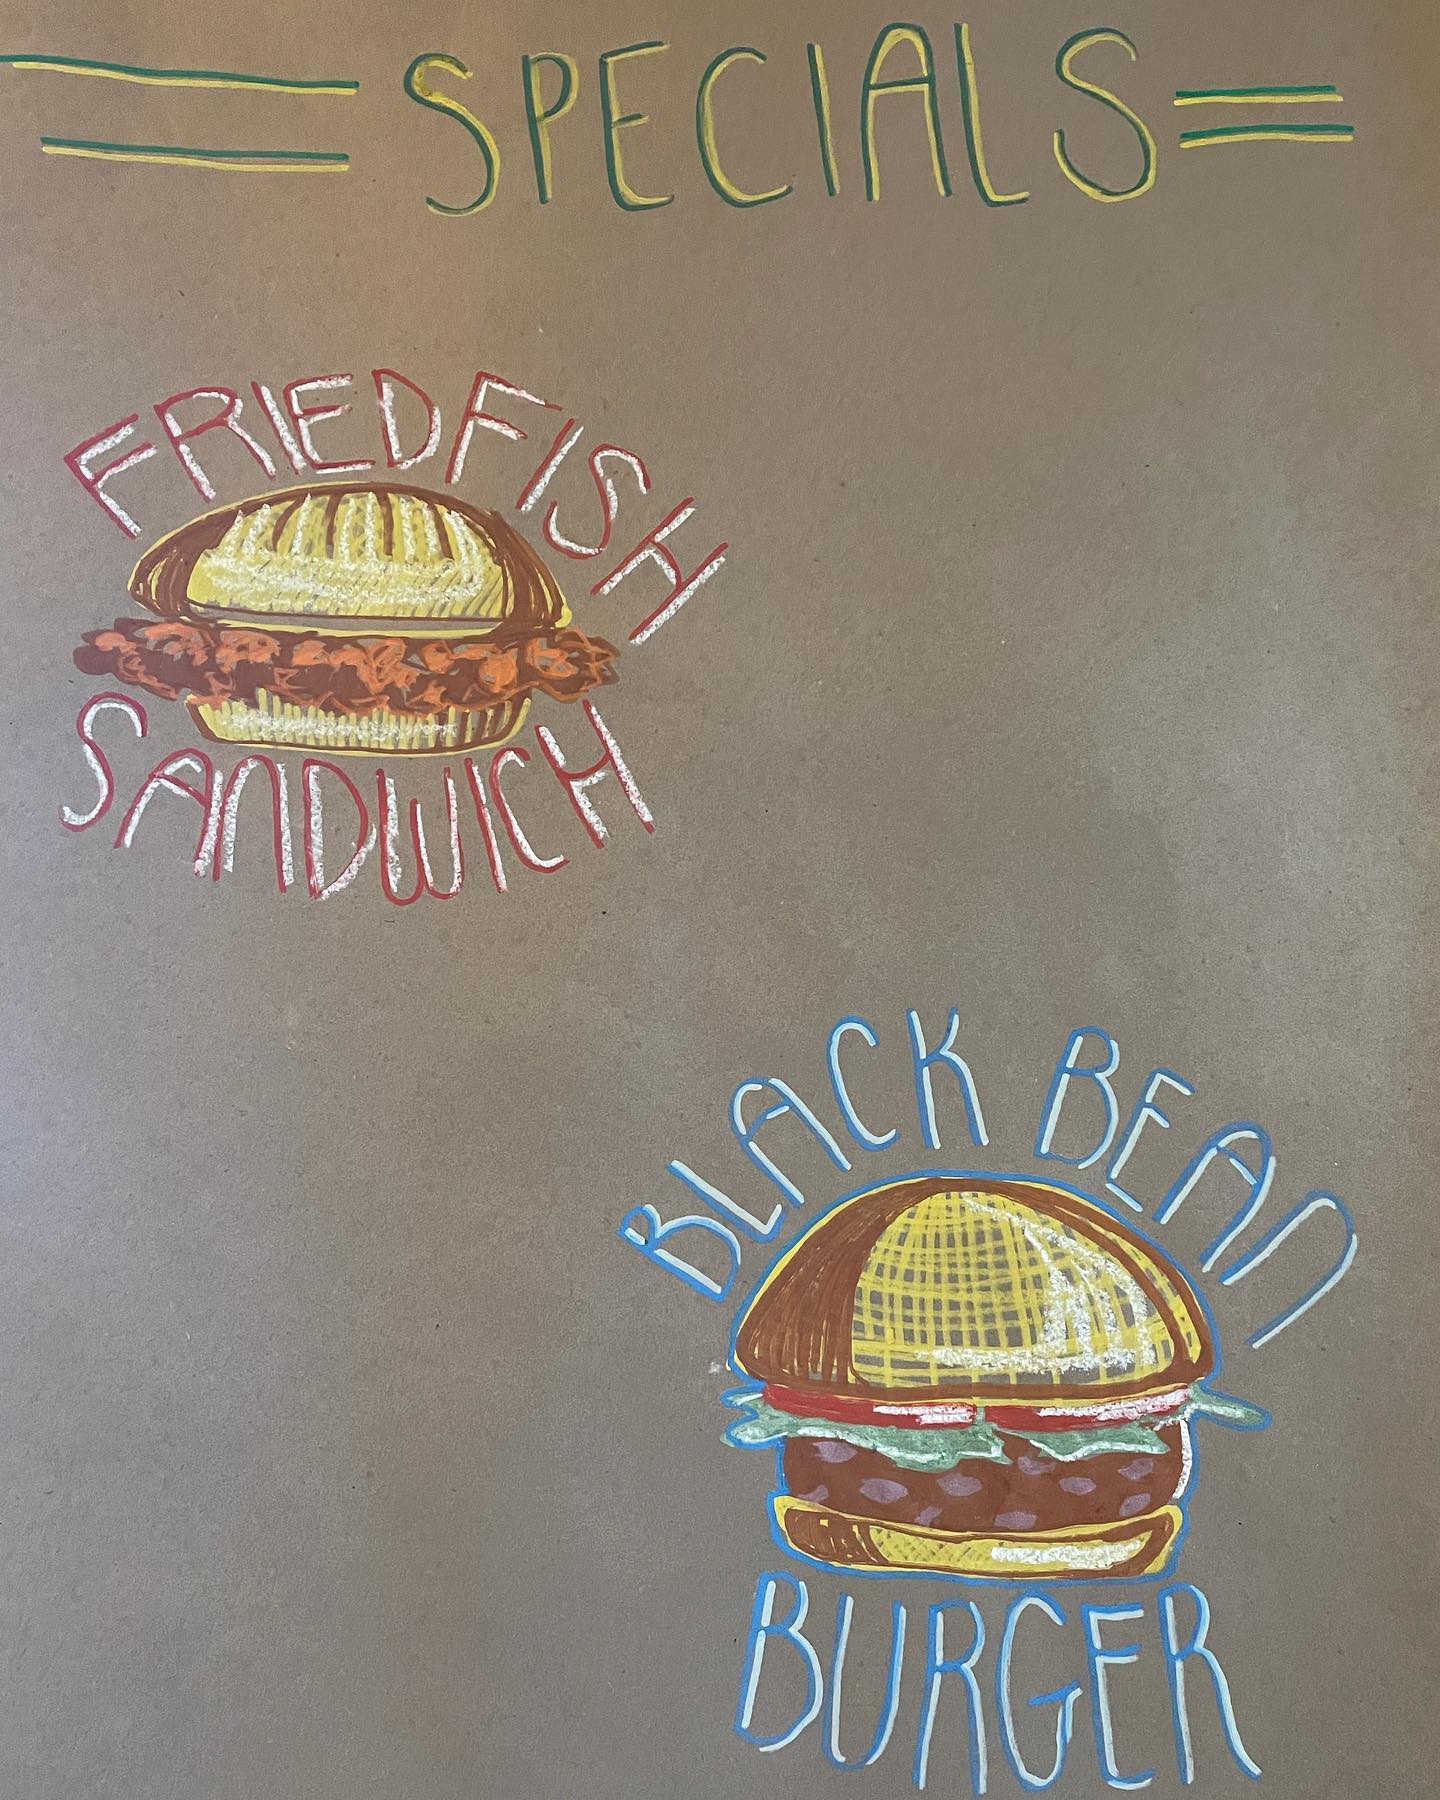 SPECIALS
FRIED FISH
SANDWICH
BLACK BEAN
BURGER